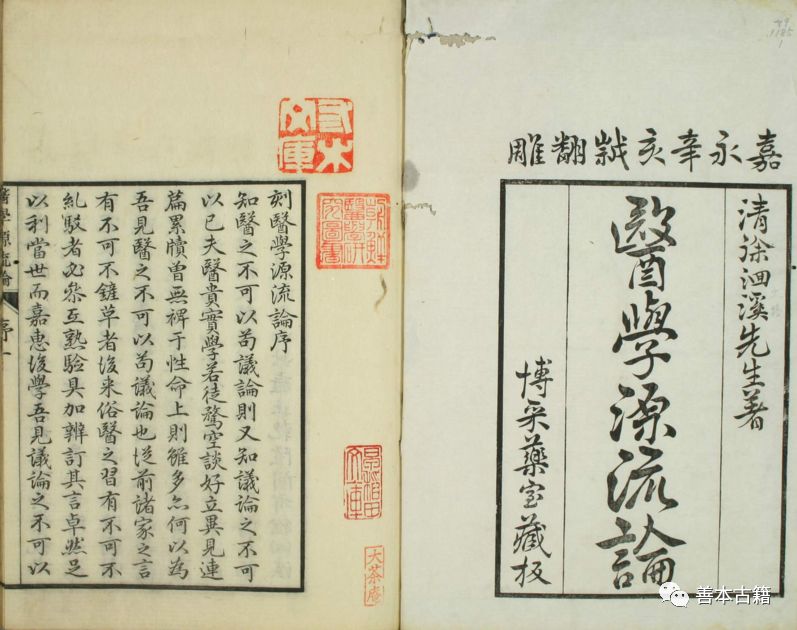 嘉永辛亥翻雕
清徐洄溪先生著
醫學源流論
博采藥室藏板
三木
文庫
朝鮮
醫學研
究圖書
文庫
大茶庵
刻醫學源流論序
知醫之不可以苟議論則又知議論之不可
以已夫醫貴實學若徒騖空談好立異見連
篇累牘曽無裨于性命上則雖多亦何以為
吾見醫之不可以苟議論也従前諸家之言
有不可不鏟草者後来俗醫之習有不可不
糺駁者必叅互熟驗具加辨訂其言卓然足
以利當世而嘉惠後學吾見議論之不可以
醫學源流論 序一
善本古籍